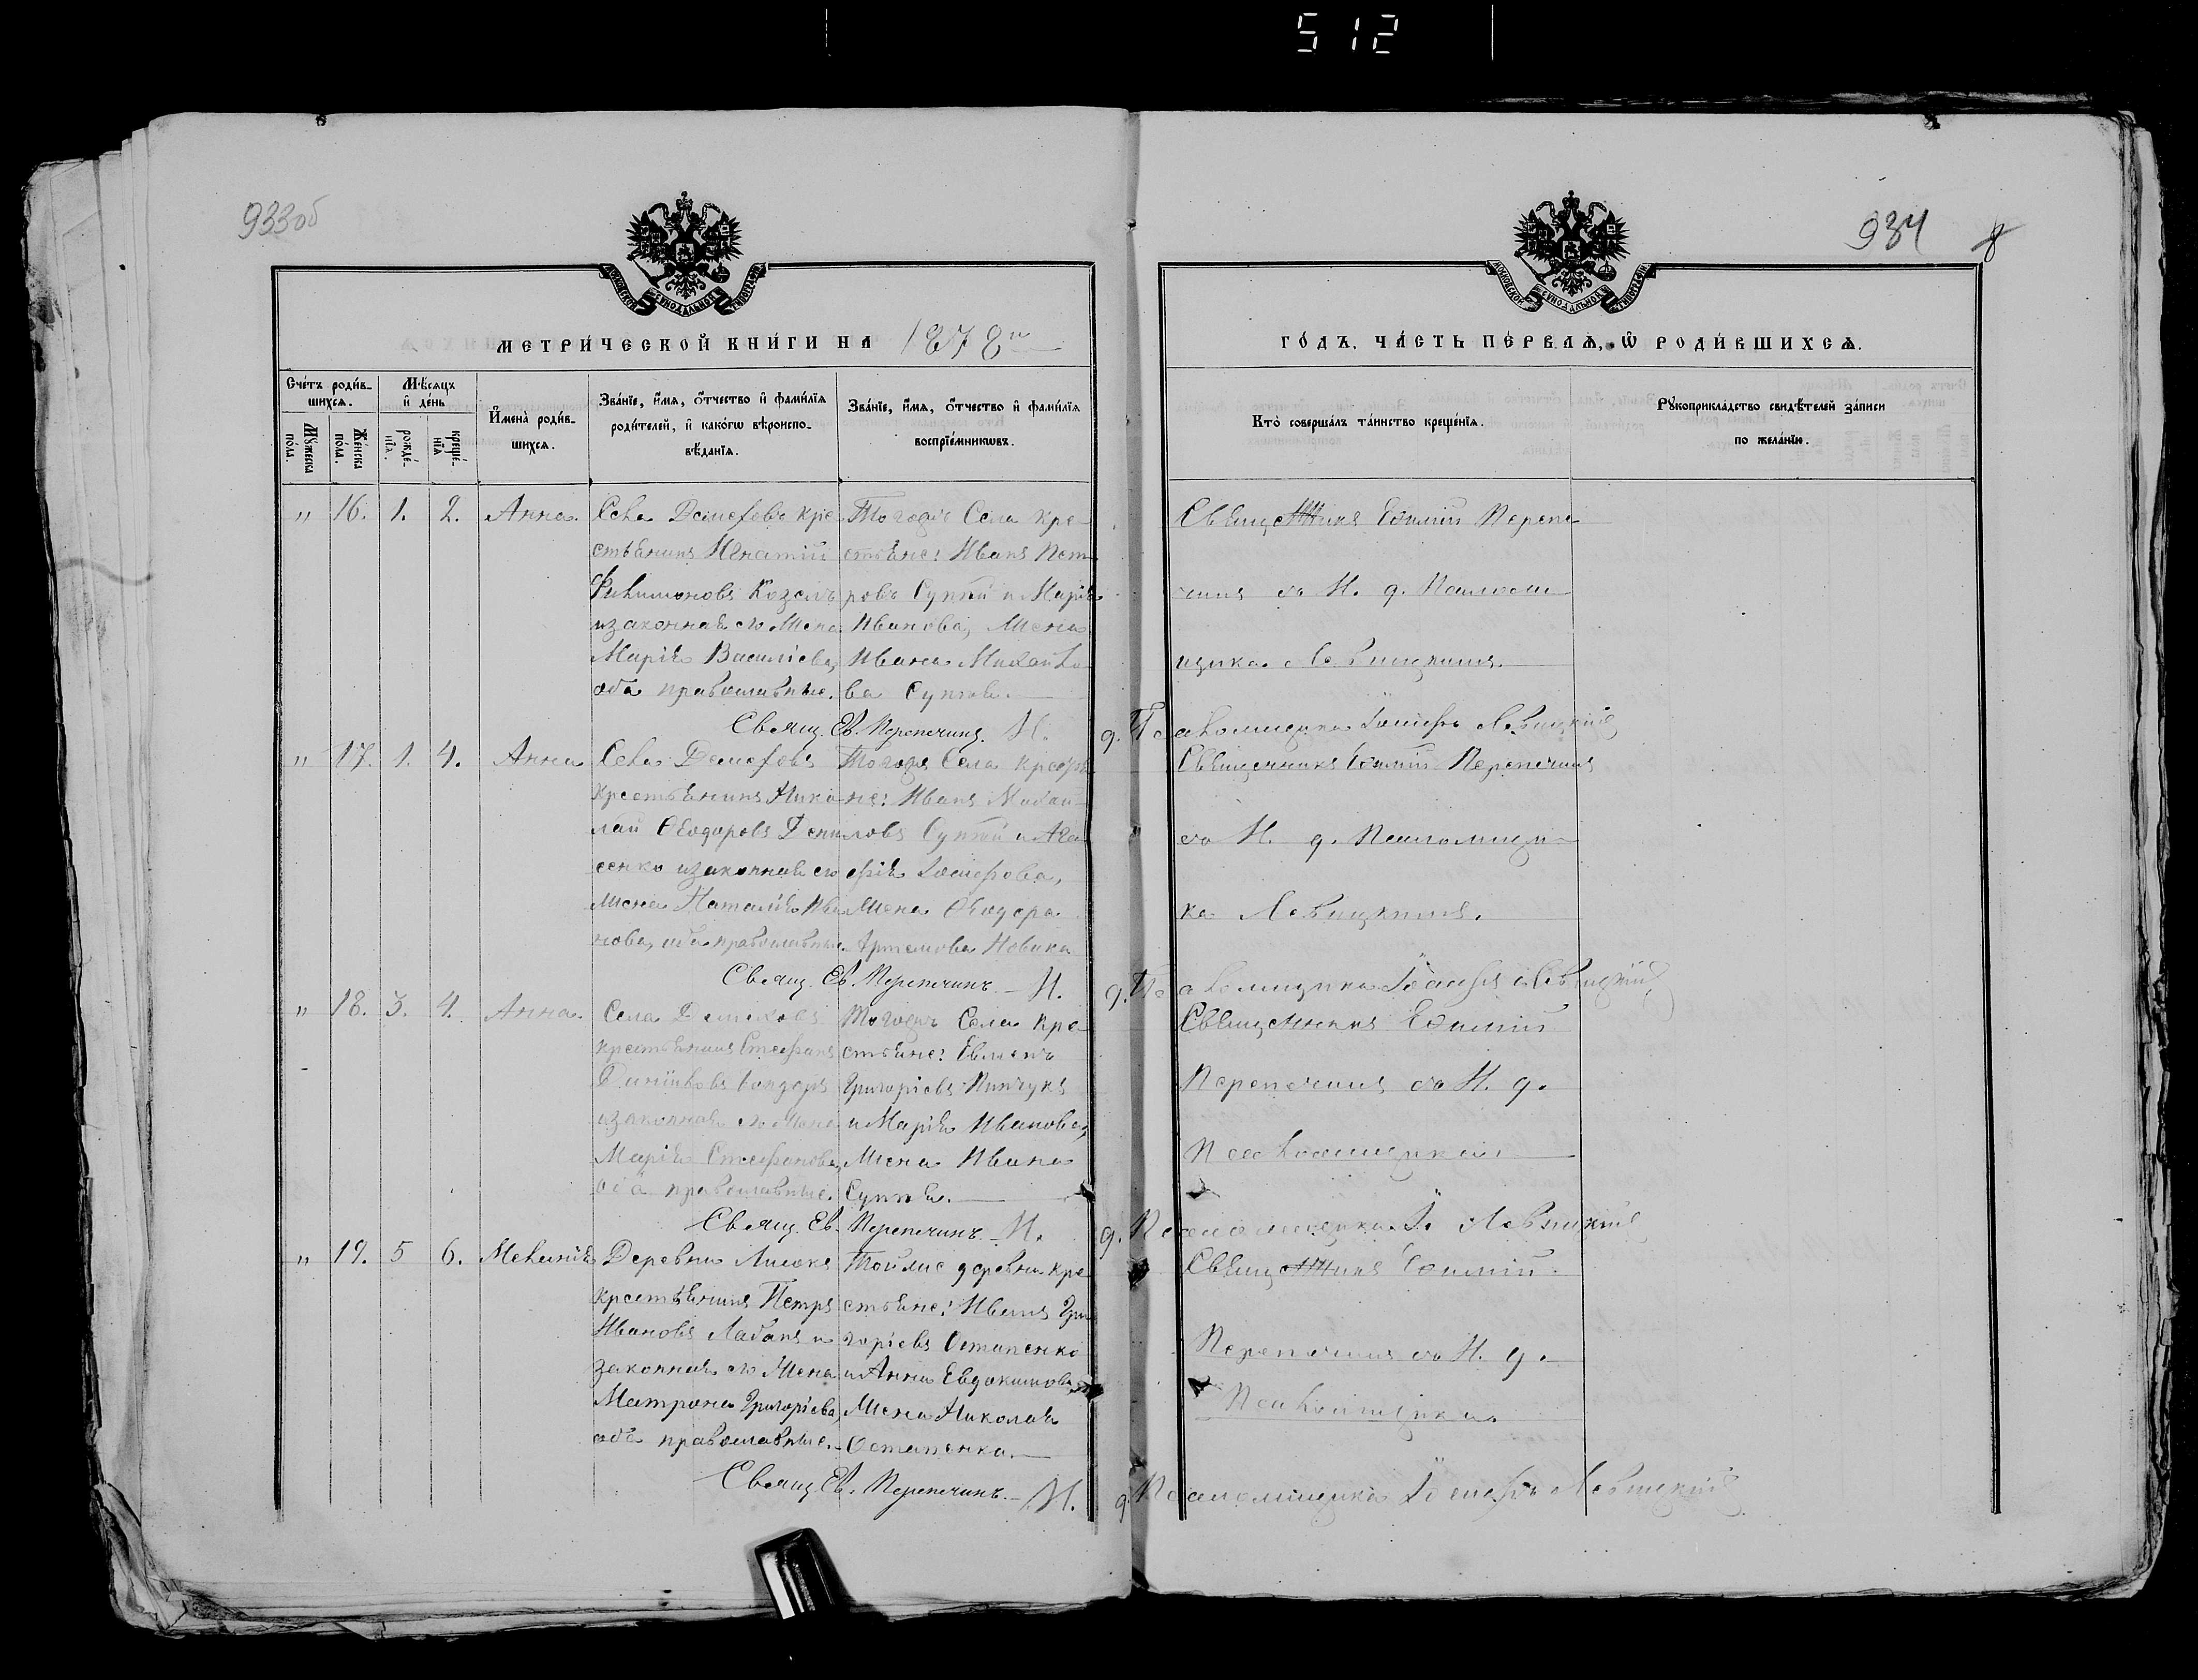 512
933об
934
МЕТРИ́ЧЕСКОЙ КНИ́ГИ НА 1878й
ГО́ДЪ, ЧА́СТЬ ПЕ́РВАѦ, Ѡ РОДИ́ВШИХСѦ.
Сче́тъ роди́вшихсѧ.
Мꙋ́жеска по́ла.
Же́нска по́ла.
Мѣ́сѧцъ и҆ де́нь
рожде́нїѧ.
креще́нїѧ
И҆мена̀ роди́вшихсѧ.
Зва́нїе, и҆́мѧ, ѻ҆́тчество и҆ фамилїѧ роди́телей, и҆ како́гѡ вѣроисповѣ́данїѧ.
Зва́нїе, и҆́мѧ, ѻ҆́тчество и҆ фами́лїѧ воспрїе́мникѡвъ.
Кто̀ соверша́лъ та́инство креще́нїѧ.
Рꙋкоприкла́дство свидѣ́телей за́писи по жела́нїю.
" 16. 1. 2. Анна.
Села Демехова кре
стьянинъ Игнатій
Филимоновъ Козелъ
и законная его жена
Марія Василіева,
оба православные.
Тогожъ Села кре-
стьяне: Иванъ Пет-
ровъ Супъ и Марія
Иванова, жена
Ивана Михайло-
ва
Священникъ Евѳимій Перепе-
чинъ съ И. д. Псаломщ
щика Левицкимъ.
Свящ. Ев. Перепечинъ. И. д. Псаломщика Іосифъ Левицкій
" 17. 1. 4. Анна
Села Демеховъ
крестьянинъ Нико
лай Ѳеодоровъ Дени
сенко и законная его
жена Наталія
нова, оба православные.
Тогожъ Села крестья
не: Иванъ Михай
ловъ и Ага
фія Іосифова,
жена Ѳеодора
Артемова Новика
Священникъ Евѳимій Перепечинъ
съ И. д. Псаломщи-
ка Левицкимъ.
Свящ. Ев. Перепечинъ. И. д. Псаломщика Іосифъ Левицкій
" 18. 3. 4. Анна.
Села Демеховъ
крестьянинъ Стефанъ
Бондаръ
и законная его жена
Марія Стефанова,
оба православные.
Тогожъ Села кре-
стьяне: Евменъ
Григоріевъ Пинчукъ
и Марія Иванова,
жена Ивана
Священникъ Евѳимій
Перепечинъ съ И. д.
Псаломщика.
Свящ. Ев. Перепечинъ. И. д. Псаломщика І. Левицкій
" 19. 5 6. Меланія
Деревни
крестьянинъ Петръ
Ивановъ Лабанъ и
законная его жена
Матрона Григоріева,
оба православные.
Той же деревни кре
стьяне: Иванъ Гри
горіевъ Остапенко
и Анна Евдокимова,
жена Николая
Остапенка.
Священникъ Евѳимій
Перепечинъ съ И. д.
Псаломщика.
Свящ. Ев. Перепечинъ. И. д. Псаломщика Іосифъ Левицкій